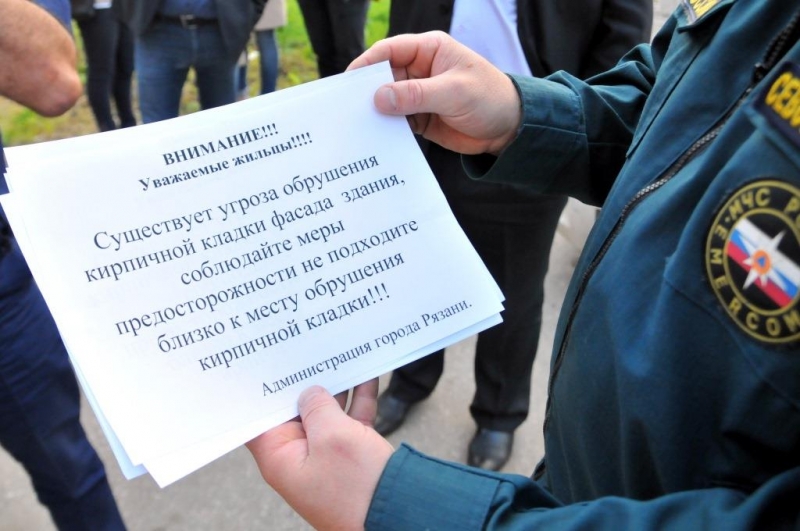 ВНИМАНИЕ!!!
Уважаемые жильцы!!!!
Существует угроза обрушения
кирпичной кладки фасада здания,
соблюдайте меры
предосторожности не подходите
близко к месту обрушения
кирпичной кладки!!!
Администрация города Рязани.
МЧС РО
EMERCOM